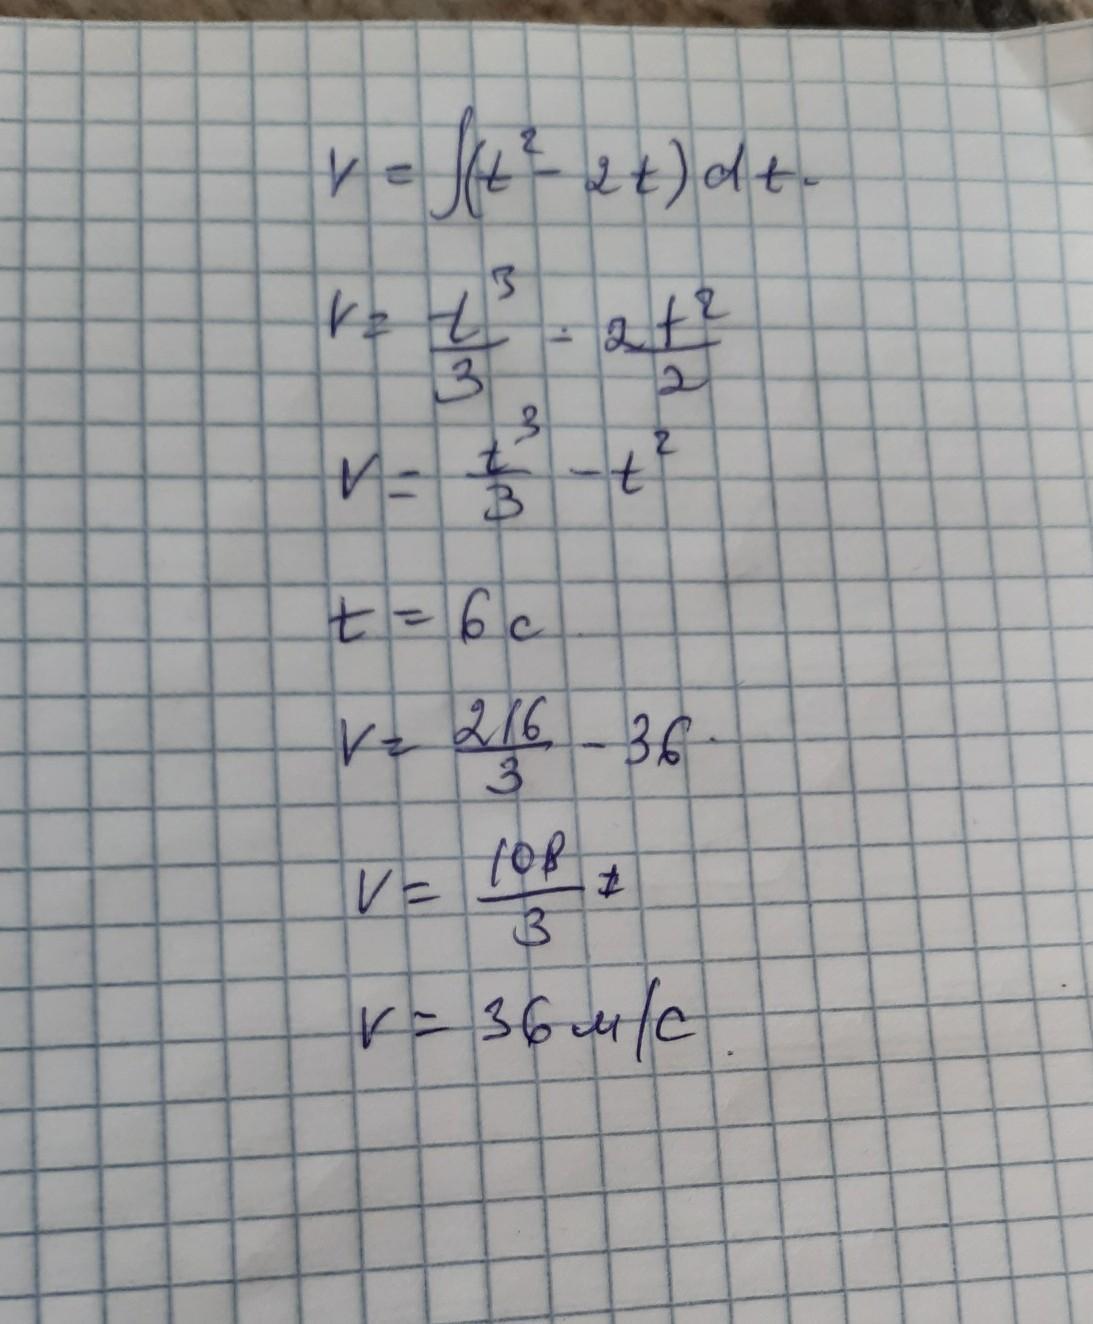 v = ∫(t² - 2t) dt.
v = t³/3 - 2t²/2
v = t³/3 - t²
t = 6 с
v = 216/3 - 36
v = 108/3
v = 36 м/с